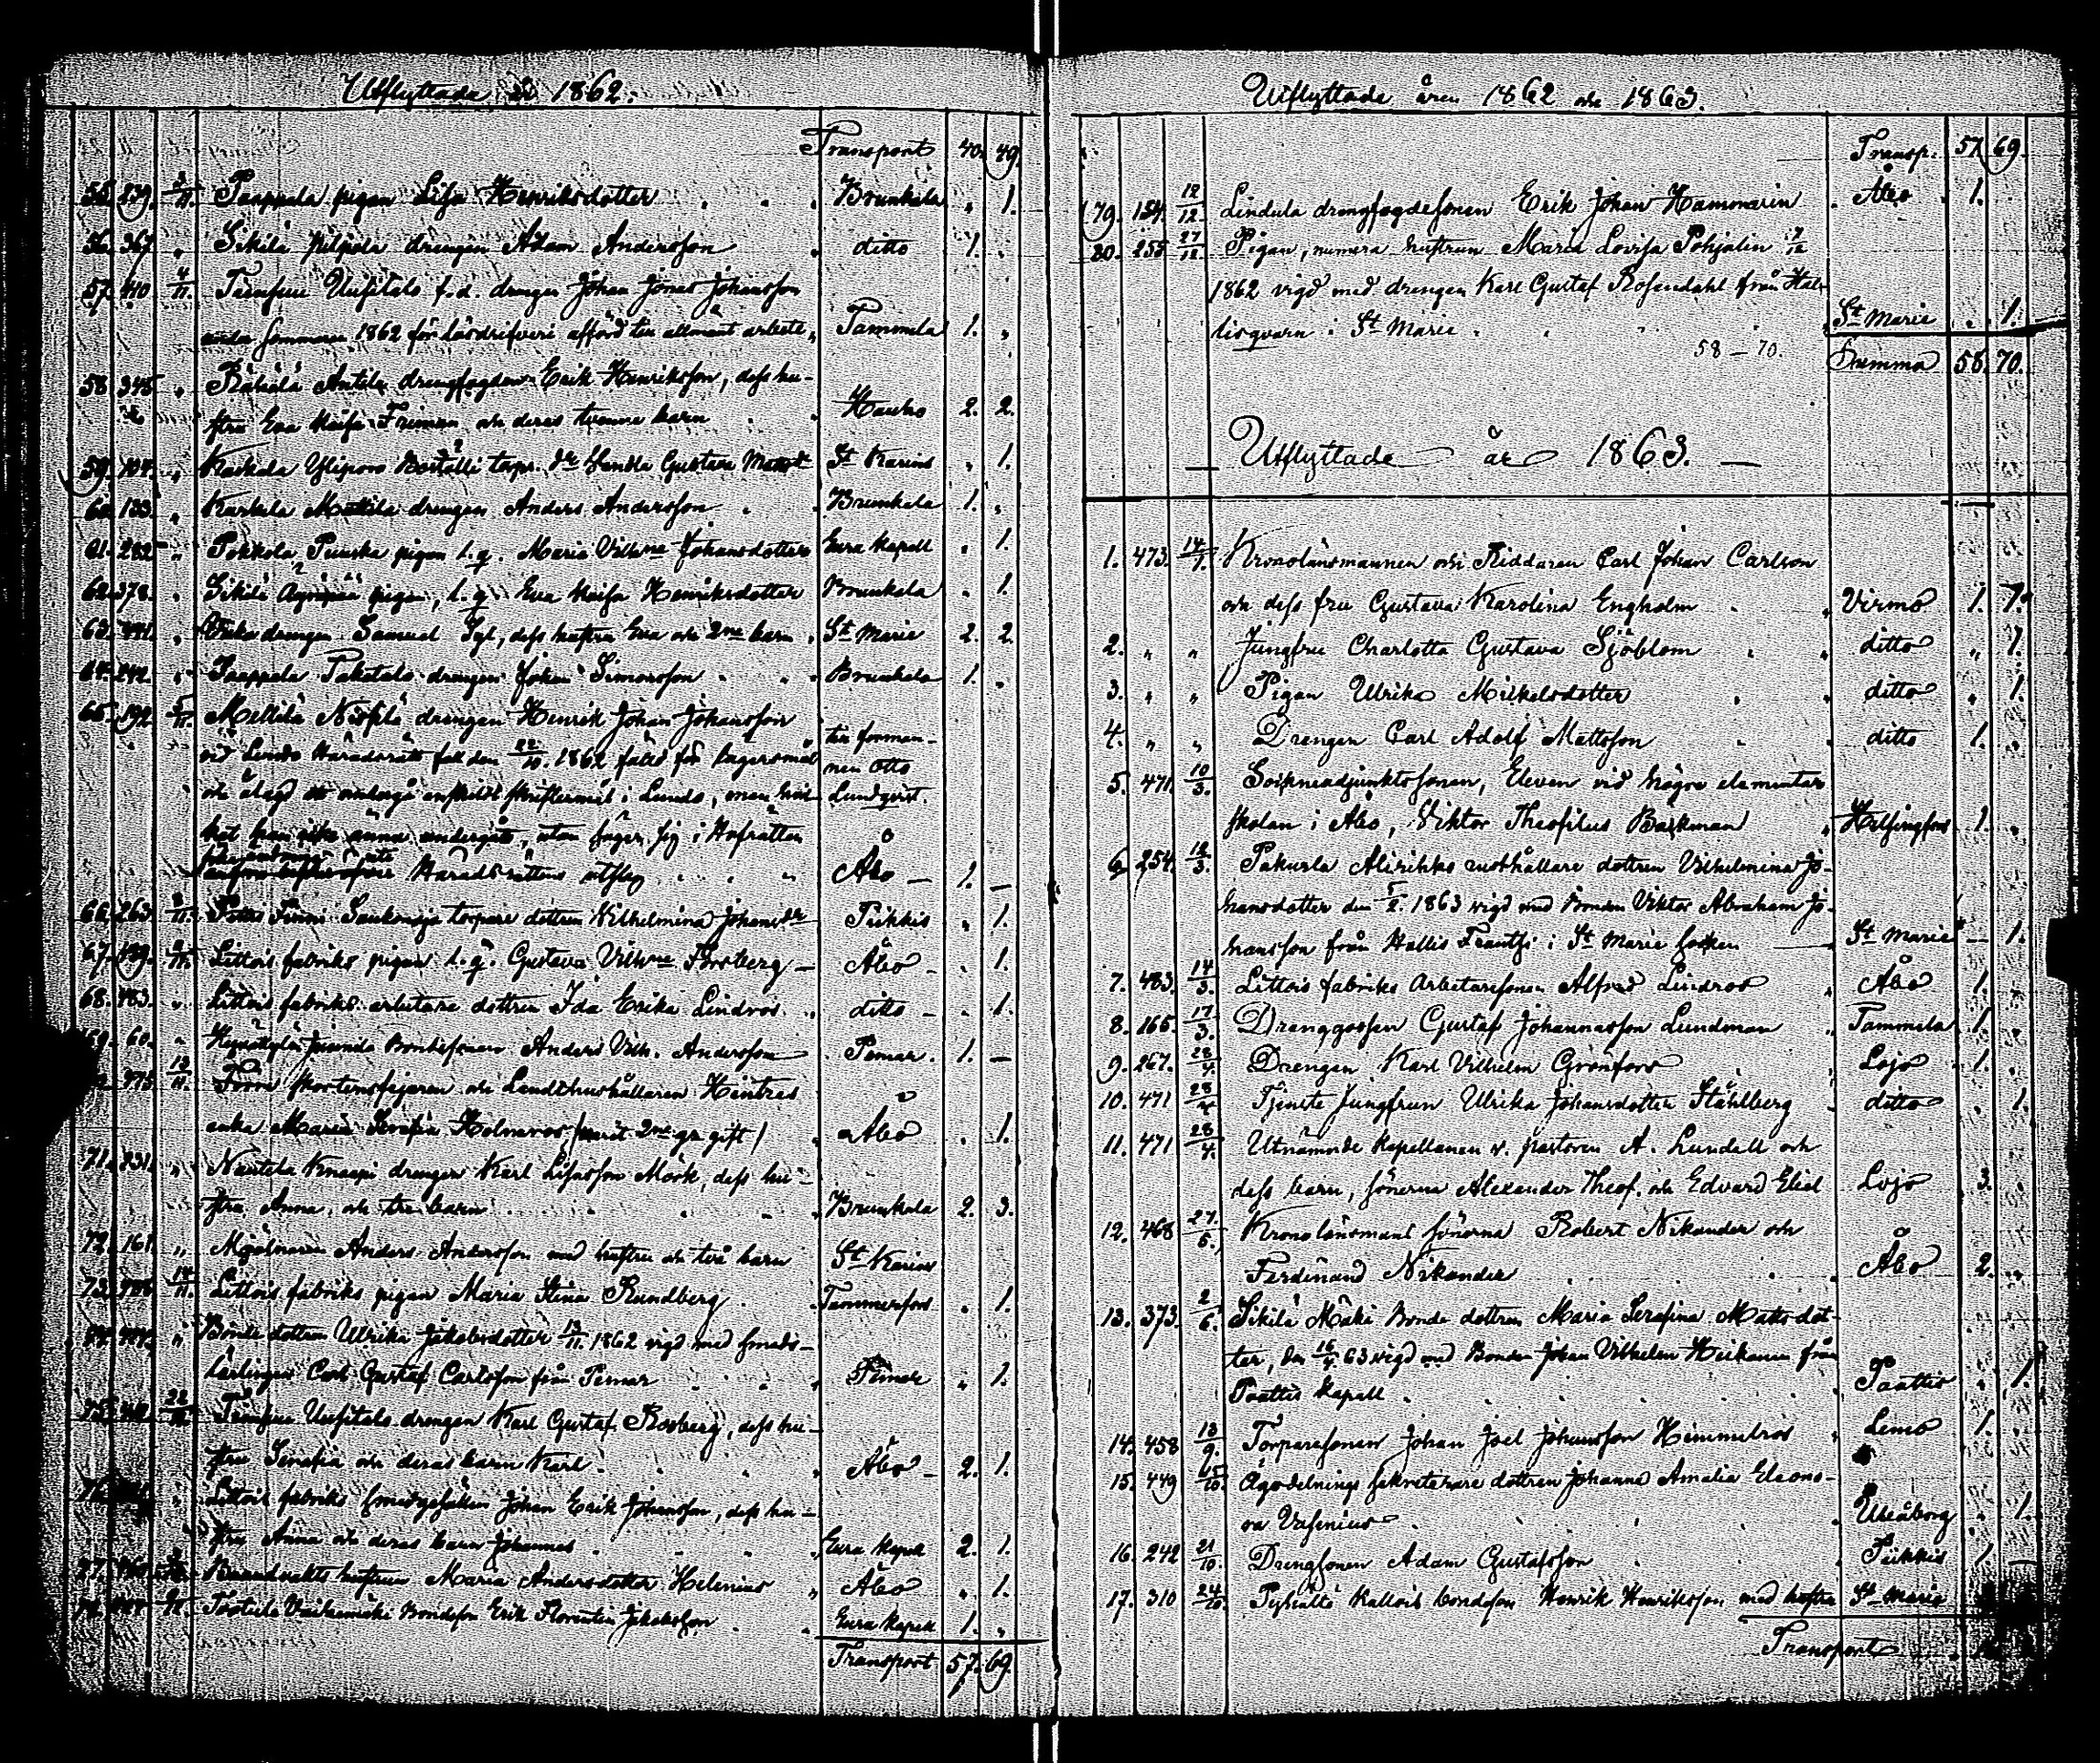 Utflyttade år 1862.
Transport 40. 49.
55. 239. 3/11. Paappala pigan Lisa Henriksdotter Brunkala „ 1.
56. 367. „ Sikilä pilpola drengen Adam Andersson ditto 1. „
57. 410 4/11. Uusitalo f.d. drengen Johan Jonas Johansson
sommaren 1862 för lösdrifveri afförd till allmänt arbete „ Tammela 1. „
58. 345 „ Räkälä Antila drengfogden Erik Henriksson, dess hu-
stru Eva Maja Friman och deras tvenne barn Hauho 2. 2.
59. 104. „ Kaskala Yliporo torp. d:r Henda Gustava St Karins „ 1.
60. 133. „ Karkela Mattila drengen Anders Andersson Brunkala 1. „
61. 282 „ Pokkola Puuska pigan l.g. Maria Vilh:na Johansdotter Eura Kapell „ 1.
62. 378. „ Sikilä pigan, l.g. Eva Maja Henriksdotter Brunkala „ 1.
63. „ drengen Samuel dess hustru Eva och 2:ne barn St Marie 2. 2.
64. 242. „ Paappala Paketalo drengen Johan Simonsson Brunkala 1. „
65. 192 5/11. Mellilä Nissilä drengen Henrik Johan Johansson
vid Lundo Häradsrätt den 22/10. 1862 fäld för lägersmål till forman-
och ålagd att undergå enskildt skriftermål i Lundo, men hvil- nen Otto
ket han icke ännu undergått, utan säger sig i Hofrätten Lundqvist.
Häradsrättens utslag Åbo — 1. —
66. 263. 8/11. Finni torpare dottren Wilhelmina Johansd:r Piikkis „ 1.
67. 189. 9/11. Littois fabriks pigan l.g. Gustava Vilh:na Forsberg — Åbo — „ 1.
68. 483. „ Littois fabriks arbetare dottren Ida Erika Lindros ditto — „ 1.
69. 60. „ Juvanda Bondesonen Anders Vilh. Andersson Pemar. 1. —
475 13/11. Förra skorstensfejaren och Landthushållaren Hintzes
enka Maria Serafia Holmeros /varit 2:ne gr gift/ Åbo „ 1.
71. 231. „ Nautela Knaapi drengen Karl Lifvasson Mörk, dess hu-
stru Anna och tre barn Brunkala 2. 3.
72. 161. „ Mjölnaren Anders Andersson med hustru och två barn St Karins
73. 14/11. Littois fabriks pigan Maria Stina Rundberg Tammerfors „ 1.
„ Bonde dottren Ulrika Jakobsdotter 13/11. 1862 vigd med smeds-
lärlingen Carl Gustaf Carlsson från Pemar Pemar „ 1.
75. 22/11 Uusitalo drengen Karl Gustaf Rosberg, dess hu-
stru Serafia och deras barn Karl Åbo — 2. 1.
76. „ Littois fabriks smedgesällen Johan Erik Johansson, dess hu-
stru Anna och deras barn Johannes Eura Kapell 2. 1.
77. Brandvakts hustrun Maria Andersdotter Helenius „ Åbo „ 1.
Bondeson Erik Florentin Jakobsson Eura kapell 1. „
Transport 57. 69.
Utflyttade åren 1862 och 1863.
Transp. 57. 69.
79. 154. 12/12. Lindula drengfogdesonen Erik Johan Hammarin Åbo 1.
80. 255 27/12. Pigan, numera hustrun Maria Lovisa Pohjalin 7/12
1862 vigd med drengen Karl Gustaf Rosendahl från Hal-
lisqvarn i St Marie St Marie „ 1.
58 — 70. Summa 58. 70.
Utflyttade år 1863. —
1. 473. 14/1. Kronolänsmannen och Riddaren Carl Johan Carlson
och dess fru Gustava Karolina Engholm Virmo 1. 1.
2. „ „ Jungfru Charlotta Gustava Sjöblom ditto „ 1.
3. „ „ Pigan Ulrika Mikkelsdotter ditto „ 1.
4. „ „ Drengen Carl Adolf Mattsson ditto 1. „
5. 471. 10/3. Socknadjunktssonen, Eleven vid högre elementar
skolan i Åbo, Viktor Theofilus Barkman Helsingfors 1. „
6 254. 12/3. Pakurla Alirihko rusthållare dottren Vilhelmina Jo-
hansdotter den 5/2. 1863 vigd med Bonden Viktor Abraham Jo-
hansson från Hallis Frantsi i St Marie socken St Marie — 1.
7. 483. 14/3. Littois fabriks Arbetaresonen Alfred Lindros Åbo 1.
8. 165. 17/3. Drenggossen Gustaf Johannasson Lundman Tammela 1.
9. 267. 28/4. Drengen Karl Vilhelm Grönfors Lojo 1.
10. 471 28/4 Tjenste Jungfrun Ulrika Johansdotter Ståhlberg ditto „ 1.
11. 471 28/4. Utnämnde Kapellanen v. pastoren A. Lundell och
dess barn, sönerna Alexander Theof. och Edvard Eliel Lojo 3.
12. 468 27/5. Kronolänsmans sönerna Robert Nikander och
Ferdinand Nikander Åbo 2. „
13. 373. 2/6. Sikilä Mäki Bonde dottren Maria Serafina Mattsdot-
ter, den 16/4 63 vigd med Bonden Johan Vilhelm Heikkinen från
Paattis Kapell Paattis „ 1.
14. 458 13/9. Torparesonen Johan Joel Johansson Himmelros Lemo 1.
15. 449 15/10. Ägodelnings sekreterare dottren Johanna Amalia Eleono-
ra Vasenius Uleåborg „ 1.
16. 242 21/10. Drengsonen Adam Gustafsson Piikkis 1. —
17. 310 24/10. Pyhältö Kallois bondeson Henrik Henriksson med hustru St Marie
Transport